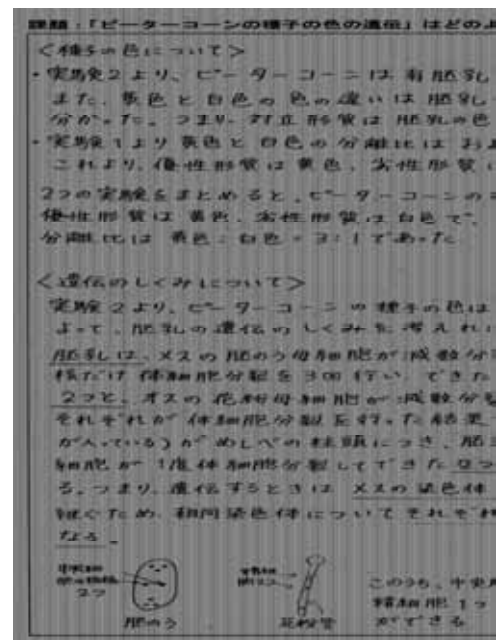 課題:「ピーターコーンの種子の色の遺伝」はどのよ
<種子の色について>
・実験2より、ピーターコーンは有胚乳
また、黄色と白色の色の違いは胚乳
分かった。つまり、対立形質は胚乳の色
・実験1より黄色と白色の分離比はおよ
これより、優性形質は黄色、劣性形質
2つの実験をまとめると、ピーターコーンの
優性形質は黄色、劣性形質は白色で、
分離比は 黄色:白色=3:1であった
<遺伝のしくみについて>
実験2より、ピーターコーンの種子の色は
よって、胚乳の遺伝のしくみを考えれ
胚乳は、メスの胚のう母細胞が減数分
核だけ体細胞分裂を3回行い、できた
2つと、オスの花粉母細胞が減数分裂
それぞれが体細胞分裂を行った結果
が入っている)がめしべの柱頭につき、
細胞が1度体細胞分裂してできた
る。つまり、遺伝するときは メスの染色体
継ぐため、相同染色体についてそれぞれ
なる。
中央細胞の極核
2つ
胚のう
精細胞
2つ
花粉管
このうち、中央
精細胞1つ
ができる